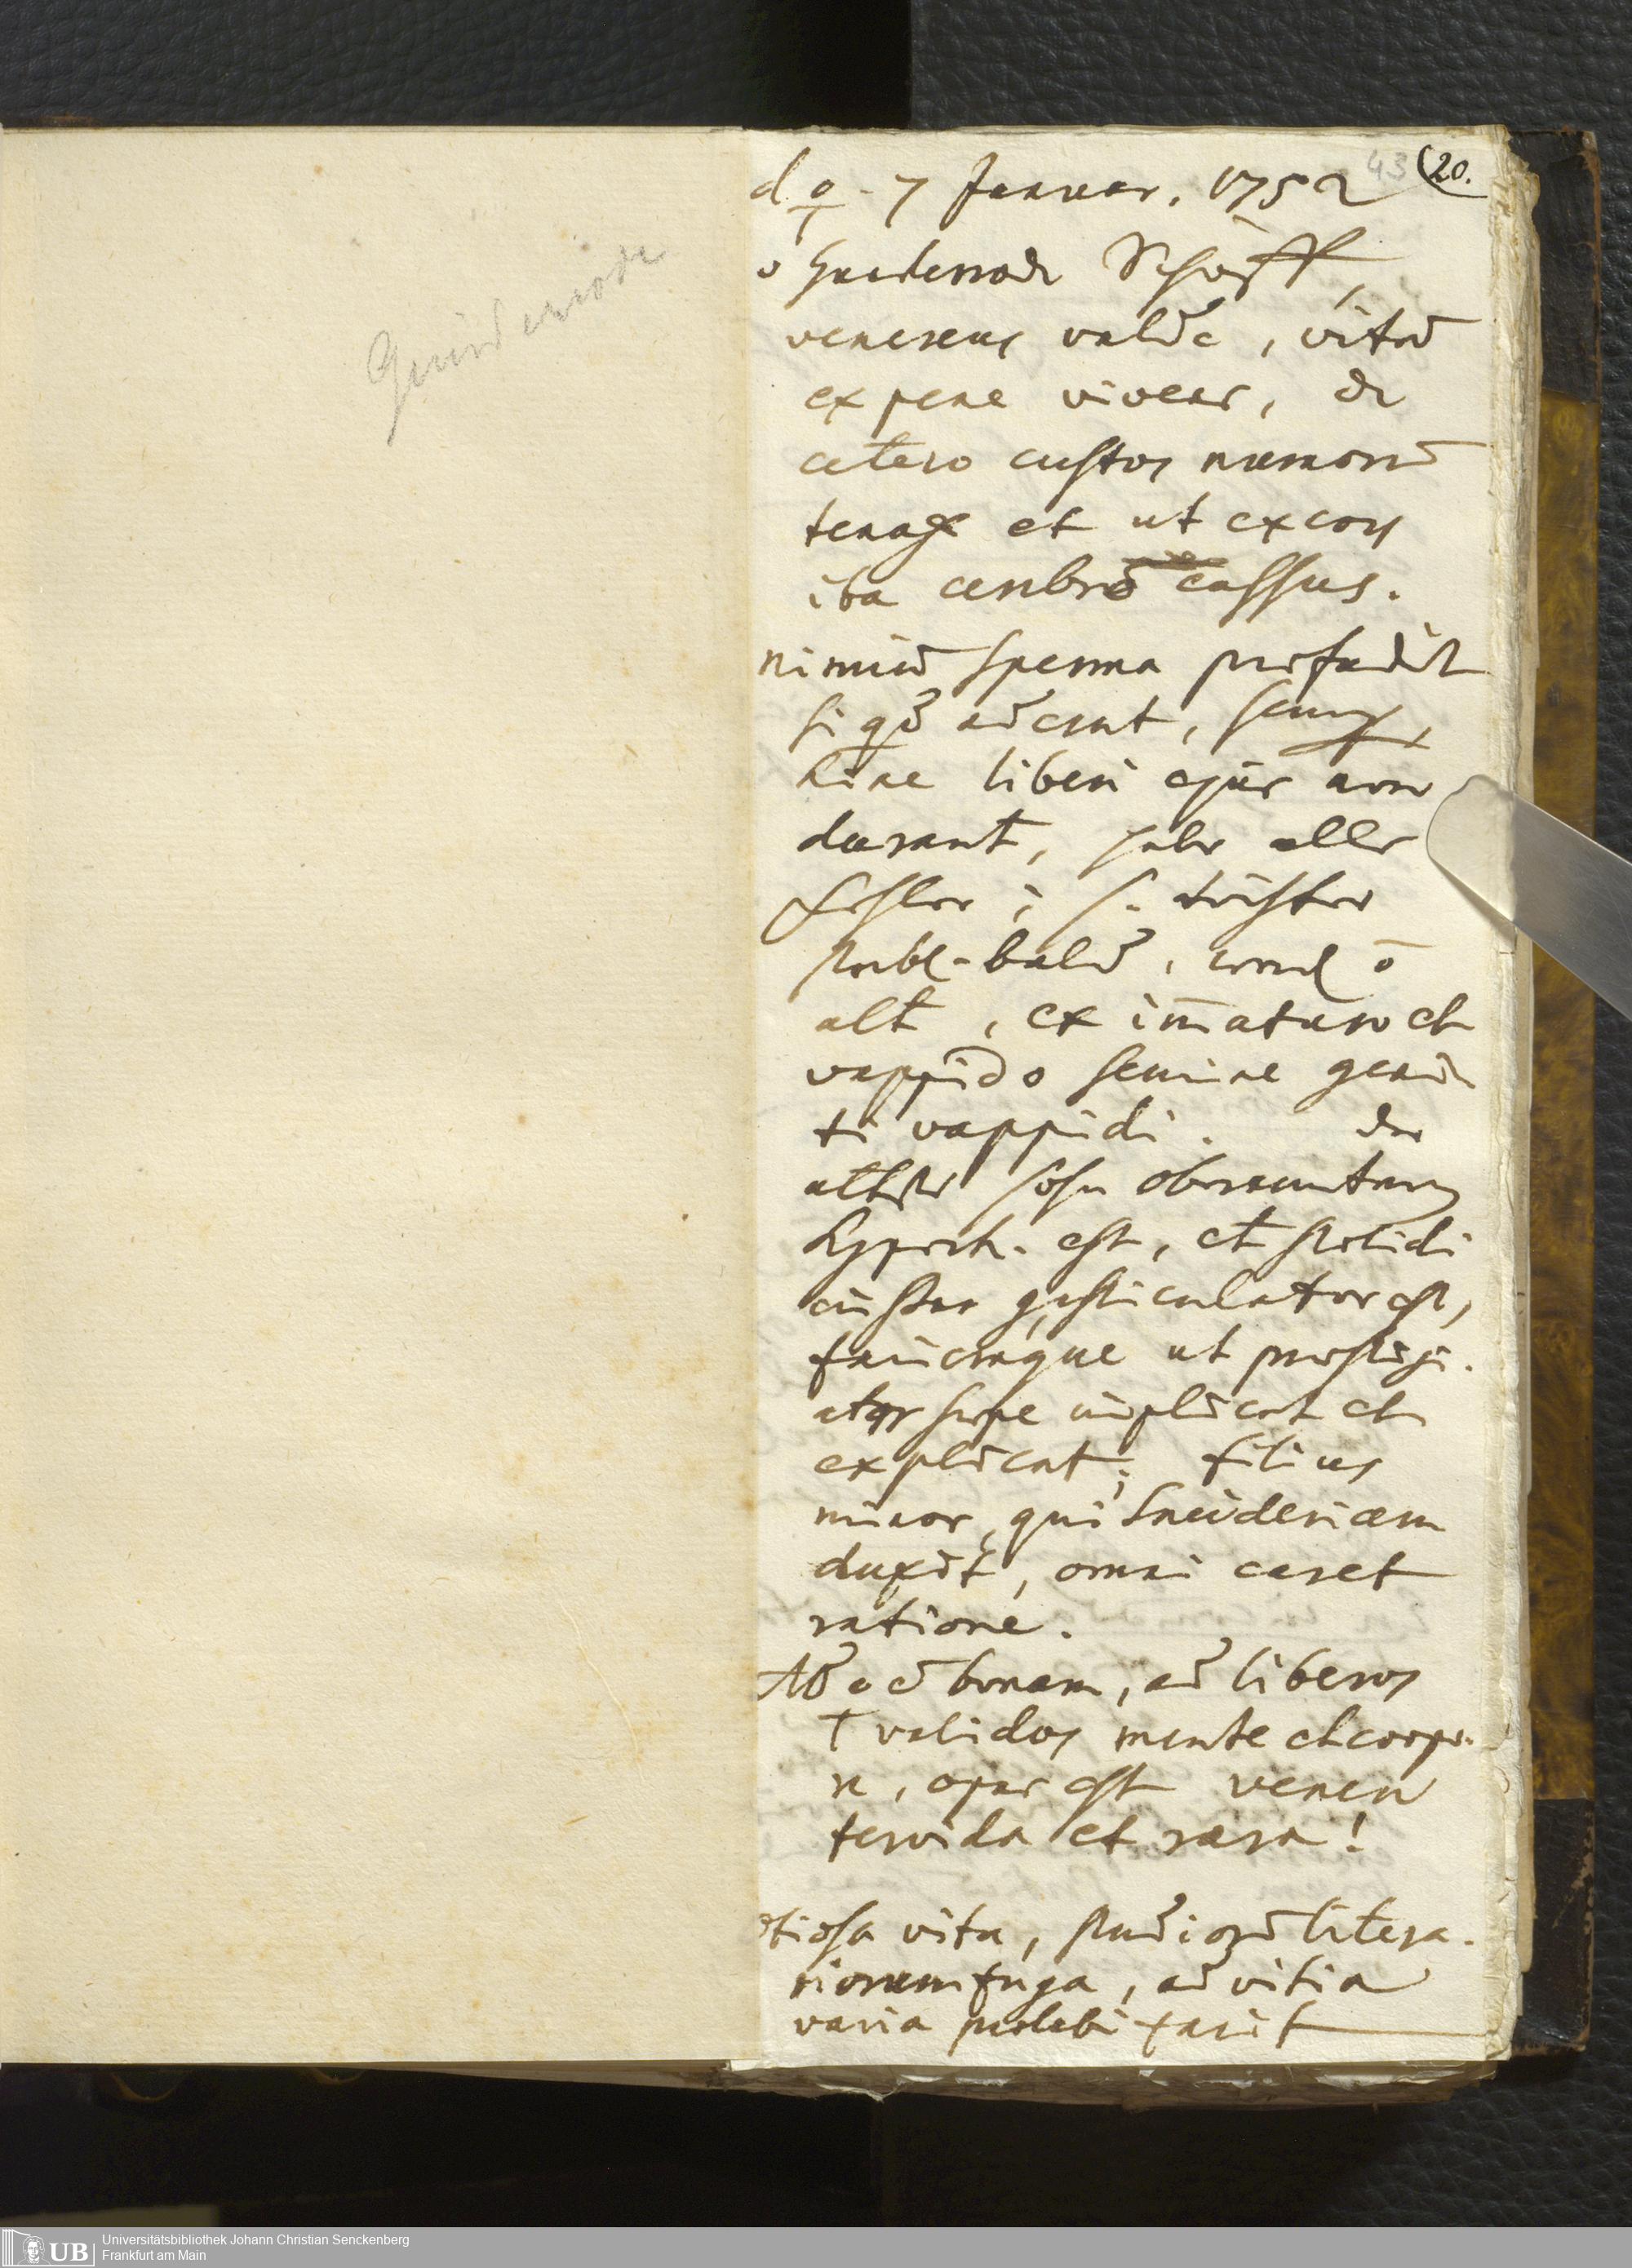 Günderrode
43 (20.
d ♀ 7 Januar. 1752
v Günderrode Schöff,
venereus valde, vitam
expene vivens, de
cetero custos numorum
tenax et ut excors
ita cerebro cassus.
nimium sperma profudit
si quod aderat, semper,
hinc liberi ejus non
durant, haben alle
Fehler; s. Töchter
sterben bald, werden o
alt, ex immaturo et
vappido semine geni
ti vappidi. der
älteste Sohn Obristleutnant
hypoch. est, et stolidi
instar gesticulator est,
funemque ut prestigi-
ator sepe implicat et
explicat; filius
minor, qui Sneideriam
duxit, omni caret
ratione.
Ad bonam, ad liberos
validos mente et corpo-
re, opus est venere
fervida et rara!
otiosa vita, studiorum litera-
riorum fuga, ad vitia
varia proclivi facit
UB Universitätsbibliothek Johann Christian Senckenberg
Frankfurt am Main